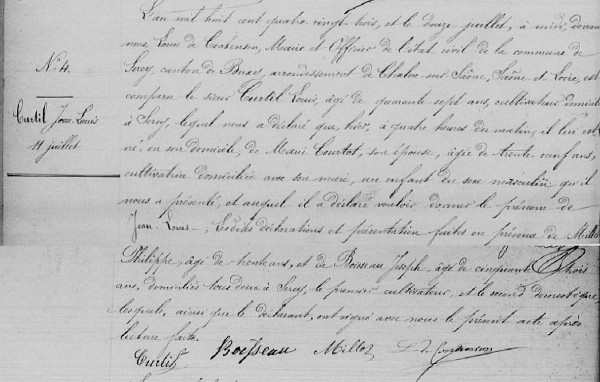 N.° 4.
Curtil Jean Louis
11 juillet
L'an mil huit cent quatre vingt trois, et le douze juillet, à midi, devant
nous, Louis de Contenson, Maire et Officier de l'état civil de la commune de
Sercy, canton de Buxy, arrondissement de Chalon-sur-Saône, Saône et Loire, est
comparu le sieur Curtil Louis, âgé de quarante sept ans, cultivateur domicilié
à Sercy, lequel nous a déclaré que, hier, à quatre heures du matin, il lui est
né, en son domicile, de Marie Courtot, son épouse, âgée de trente neuf ans,
cultivatrice domiciliée avec son mari, un enfant du sexe masculin qu'il
nous a présenté, et auquel il a déclaré vouloir donner le prénom de
Jean-Louis, Lesdites déclarations et présentation faites en présence de Millot
Philippe, âgé de trente ans, et de Boisseau Joseph, âgé de cinquante trois
ans, domiciliés tous deux à Sercy, le premier cultivateur, et le second domestique,
lesquels, ainsi que le déclarant, ont signé avec nous le présent acte après
lecture faite.
Curtil Boisseau Millot L. de Contenson